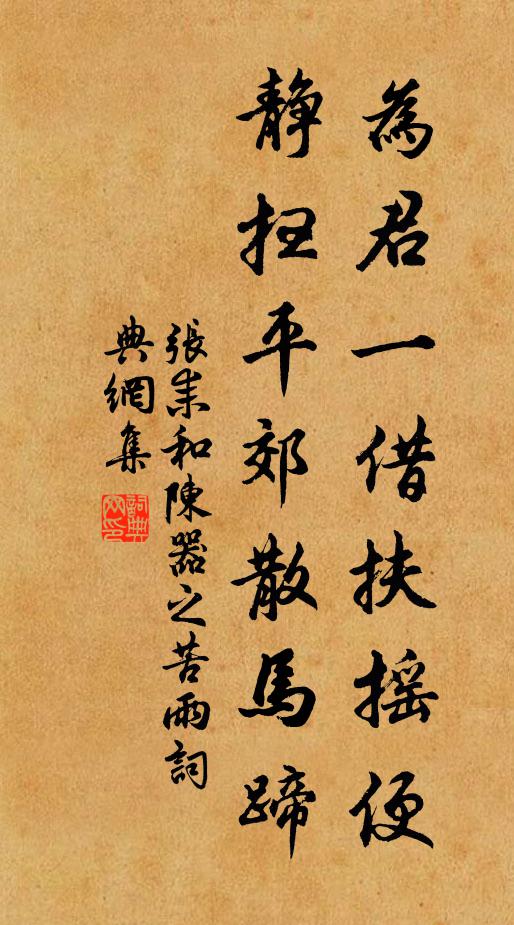 為君一借扶搖便
靜掃平郊散馬蹄
張耒和陳器之苦雨詞
典網集
詞典網印